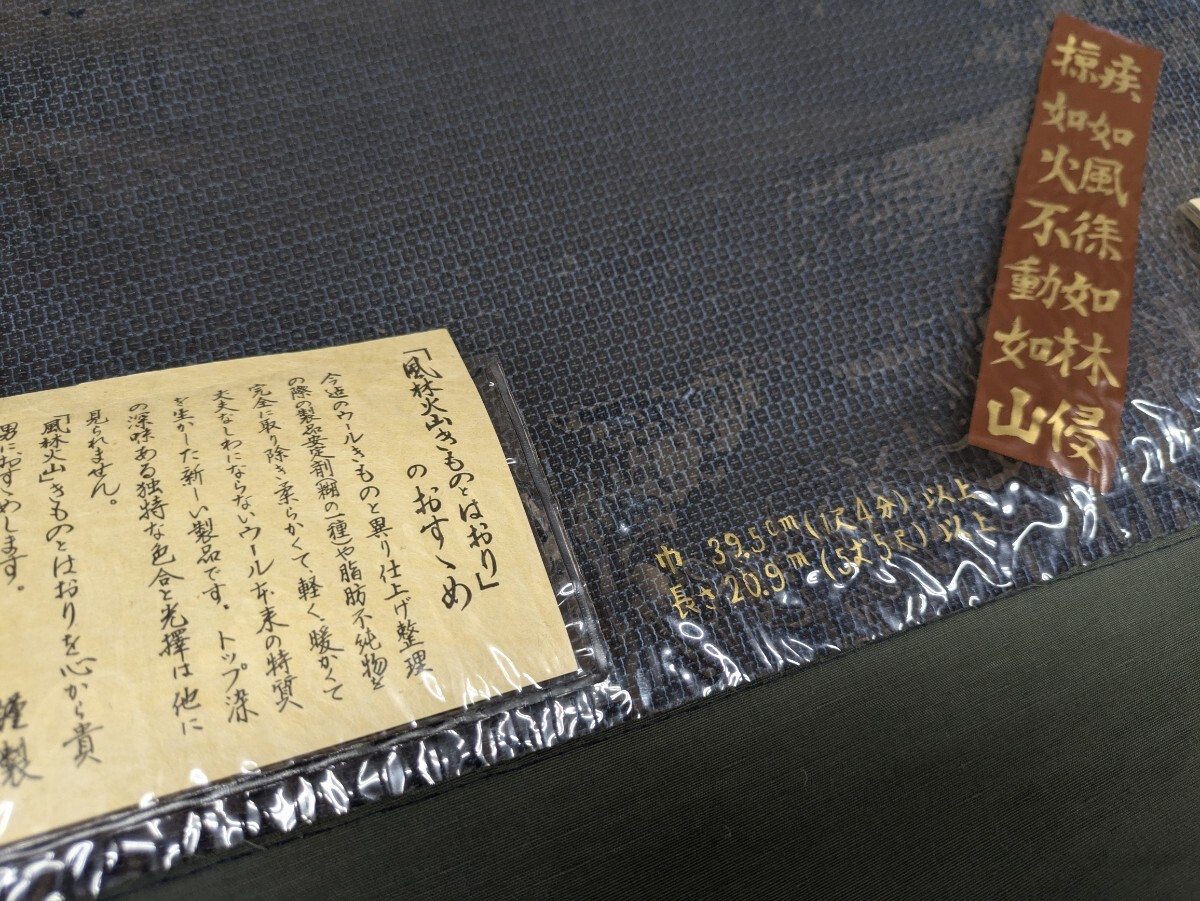 疾如風徐如林侵
掠如火不動如山
巾 39.5cm(1尺4分)以上
長さ 20.9m(5丈5尺)以上
「風林火山きものとはおり」
のおすゝめ
今迄のウールきものと異り仕上げ整理
の際の製品安定剤(糊の一種)や脂肪不純物を
完全に取り除き柔らかくて、軽く、暖かくて
丈夫なしわにならないウール本来の特質
を生かした新しい製品です。トップ染
の深味ある独特な色合と光擇は他に
見られません。
「風林火山」きものとはおりを心から貴
男におすゝめします。
謹製